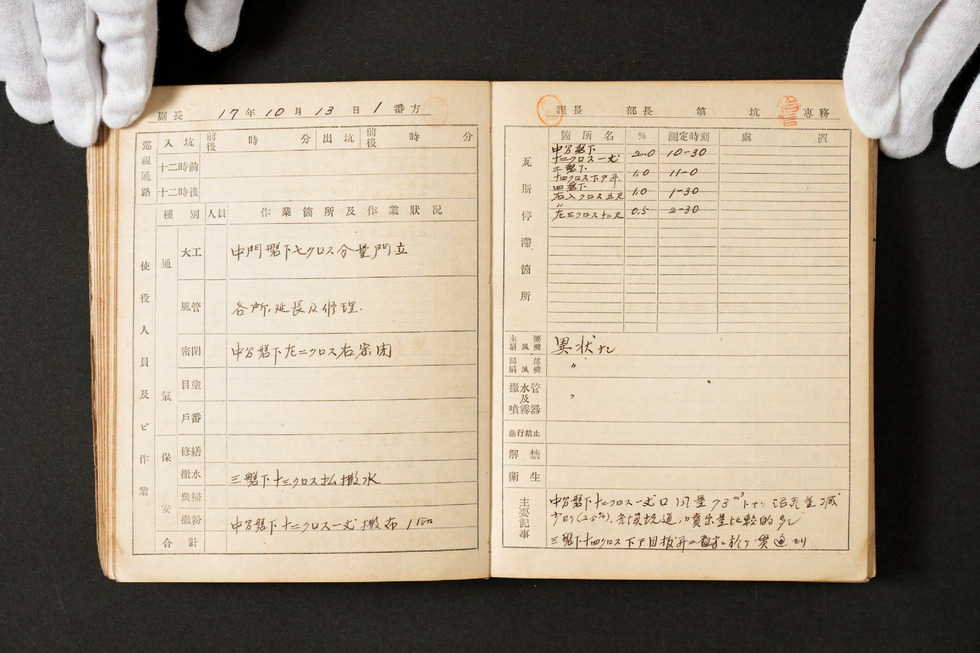 副長 17年10月13日1番方
巡視通路 入坑 前後 時 分 出坑 前後 時 分
十二時前
十二時後
使役人員及ビ作業
種別 人員 作業箇所及作業狀況
通氣
大工 中門盤下七クロス分量門立
風管 各所延長及修理.
密閉 中分盤下左二クロス右密閉
目塗
戶番
保安
修繕
撒水 三盤下十三クロス払撒水
炭掃
撒粉 中分盤下十二クロス一丈撒布
合計
課長 部長 第 坑 專務
瓦斯停滯箇所
箇所名 % 測定時刻 處置
中分盤下
十二クロス一丈 2.0 10-30
三盤下
十四クロス下戸 1.0 11-0
四盤下
右入クロス五尺 1.0 1-30
〃
左三クロス十二尺 0.5 2-30
主要扇風機 異狀ナシ
局部扇風機 〃
撒水管及噴霧器 〃
進行禁止
解禁
衛生
主要記事
中分盤下十二クロス一丈口風量93m³
三盤下十四クロス下戸目拔昇 貫通セリ